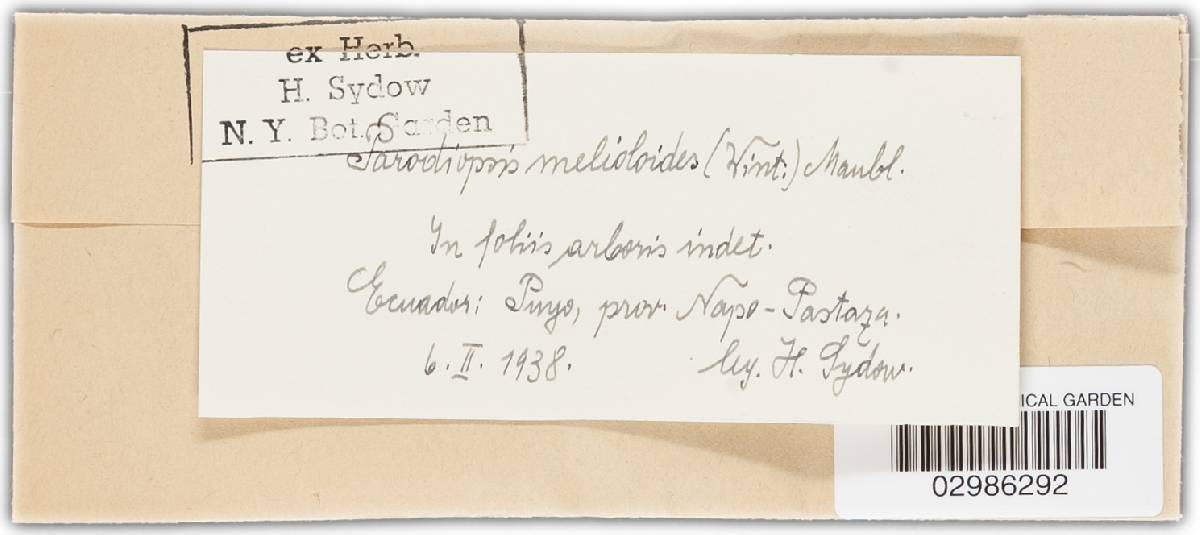 ex Herb.
H. Sydow
N. Y. Bot. Garden
Parodiopsis melioloides (Wint.) Maubl.
In foliis arboris indet.
Ecuador: Puyo, prov. Napo-Pastaza.
6. II. 1938. leg. H. Sydow.
ICAL GARDEN
02986292